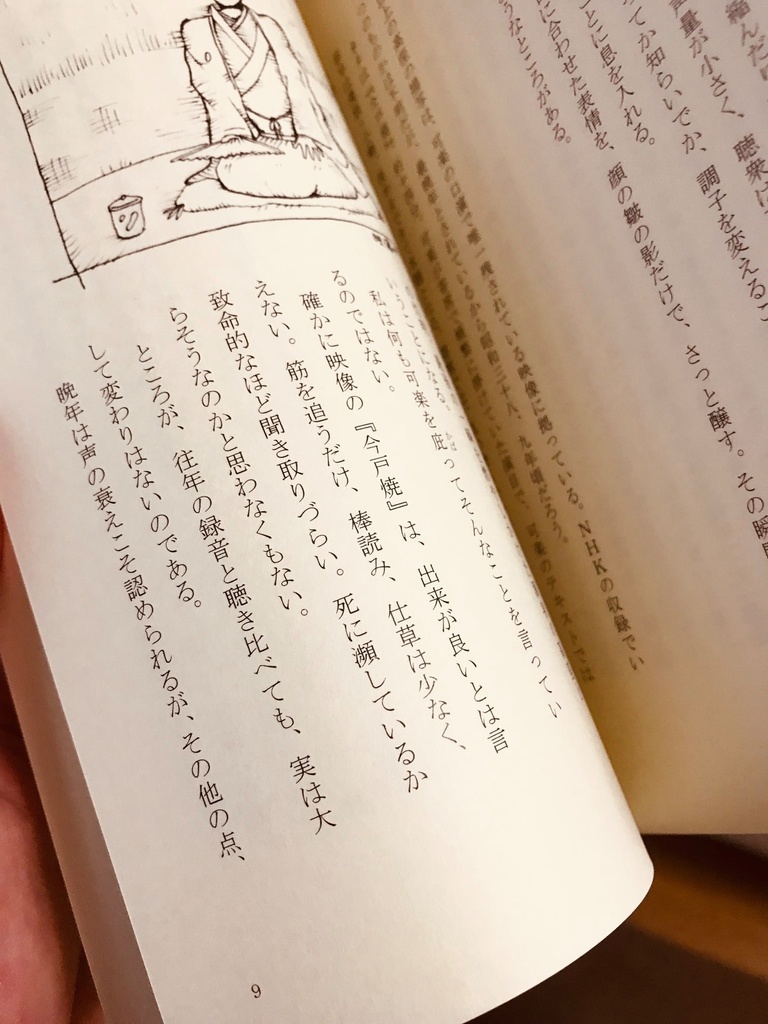 縮んだ
量が小さく、聴衆は
ってか知らいでか、調子を変えるこ
ことに息を入れる。
に合わせた表情を、顔の皺の影だけで、さっと醸す。その瞬
うなところがある。
可楽の口演で唯一残されている映像に拠っている。NHKの収録でい
最晩年とされているから昭和三十八、九年頃だろう。
可楽のテキストでは
いうことになる。
私は何も可楽を庇ってそんなことを言ってい
るのではない。
確かに映像の『今戸焼』は、出来が良いとは言
えない。筋を追うだけ、棒読み、仕草は少なく、
致命的なほど聞き取りづらい。死に瀕しているか
らそうなのかと思わなくもない。
ところが、往年の録音と聴き比べても、実は大
して変わりはないのである。
晩年は声の衰えこそ認められるが、その他の点、
9